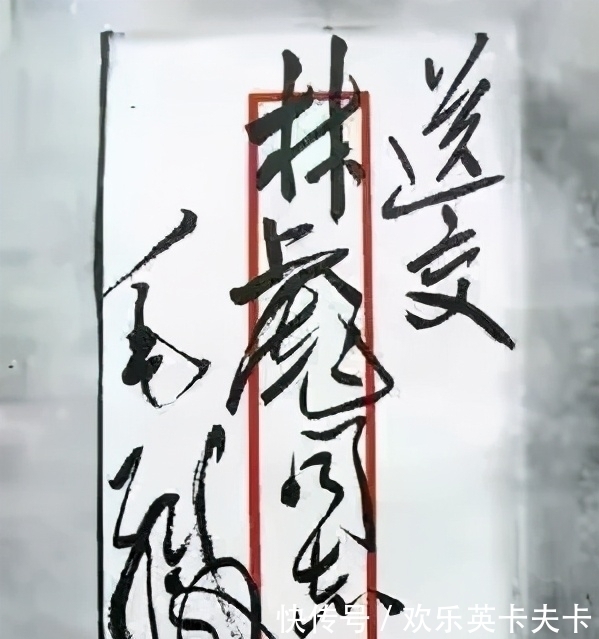 送交
林彪同志
毛
快传号 / 欢乐英卡夫卡